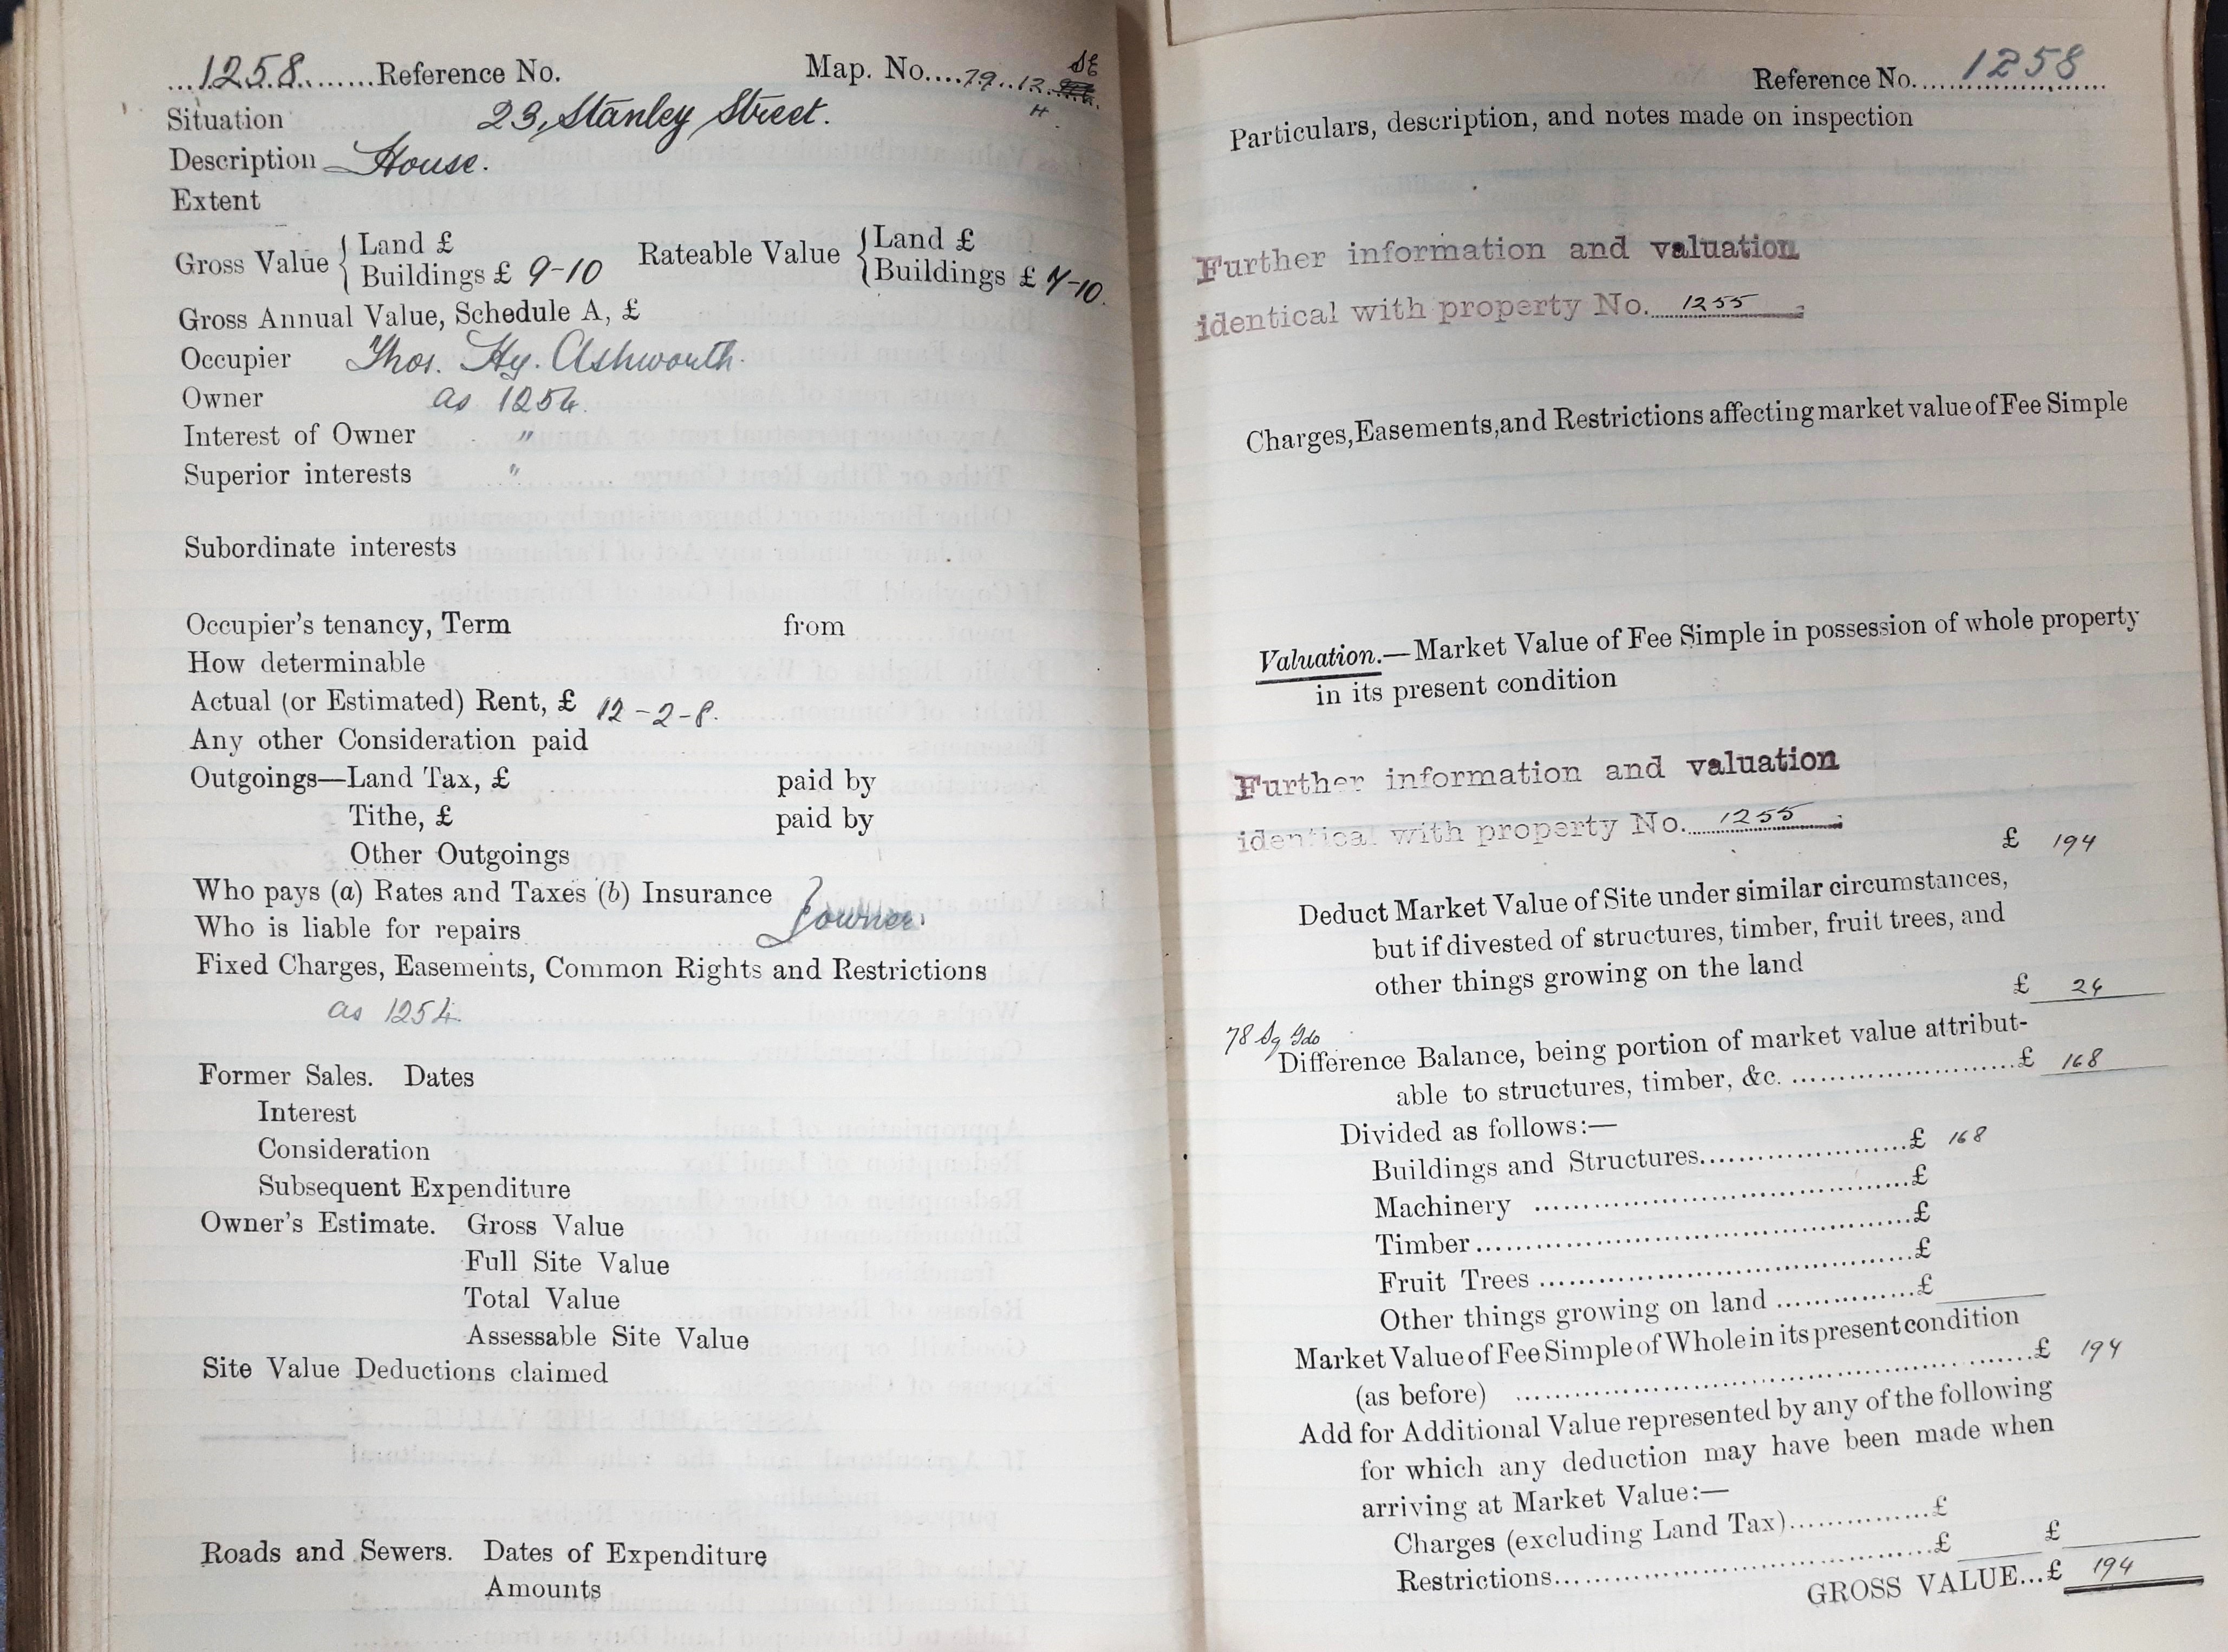 ...1258.......Reference No. Map. No....79..12... SE
H.
Situation 23, Stanley Street.
Description House.
Extent
Gross Value { Land £ Rateable Value { Land £
Buildings £ 9-10 Buildings £ 7-10.
Gross Annual Value, Schedule A, £
Occupier Thos. Hy. Ashworth.
Owner as 1254.
Interest of Owner "
Superior interests "
Subordinate interests
Occupier's tenancy, Term from
How determinable
Actual (or Estimated) Rent, £ 12-2-8.
Any other Consideration paid
Outgoings—Land Tax, £ paid by
Tithe, £ paid by
Other Outgoings
Who pays (a) Rates and Taxes (b) Insurance
Who is liable for repairs } owner.
Fixed Charges, Easements, Common Rights and Restrictions
as 1254.
Former Sales. Dates
Interest
Consideration
Subsequent Expenditure
Owner's Estimate. Gross Value
Full Site Value
Total Value
Assessable Site Value
Site Value Deductions claimed
Roads and Sewers. Dates of Expenditure
Amounts
Reference No. 1258
Particulars, description, and notes made on inspection
Further information and valuation
identical with property No. 1255
Charges, Easements, and Restrictions affecting market value of Fee Simple
Valuation.—Market Value of Fee Simple in possession of whole property
in its present condition
Further information and valuation
identical with property No. 1255
£ 194
Deduct Market Value of Site under similar circumstances,
but if divested of structures, timber, fruit trees, and
other things growing on the land
£ 26
78 Sq Yds
Difference Balance, being portion of market value attribut-
able to structures, timber, &c. ........£ 168
Divided as follows:—
Buildings and Structures........£ 168
Machinery ........£
Timber........£
Fruit Trees ........£
Other things growing on land ........£
Market Value of Fee Simple of Whole in its present condition
(as before) ........£ 194
Add for Additional Value represented by any of the following
for which any deduction may have been made when
arriving at Market Value:—
Charges (excluding Land Tax)........£
Restrictions........£ £
GROSS VALUE...£ 194